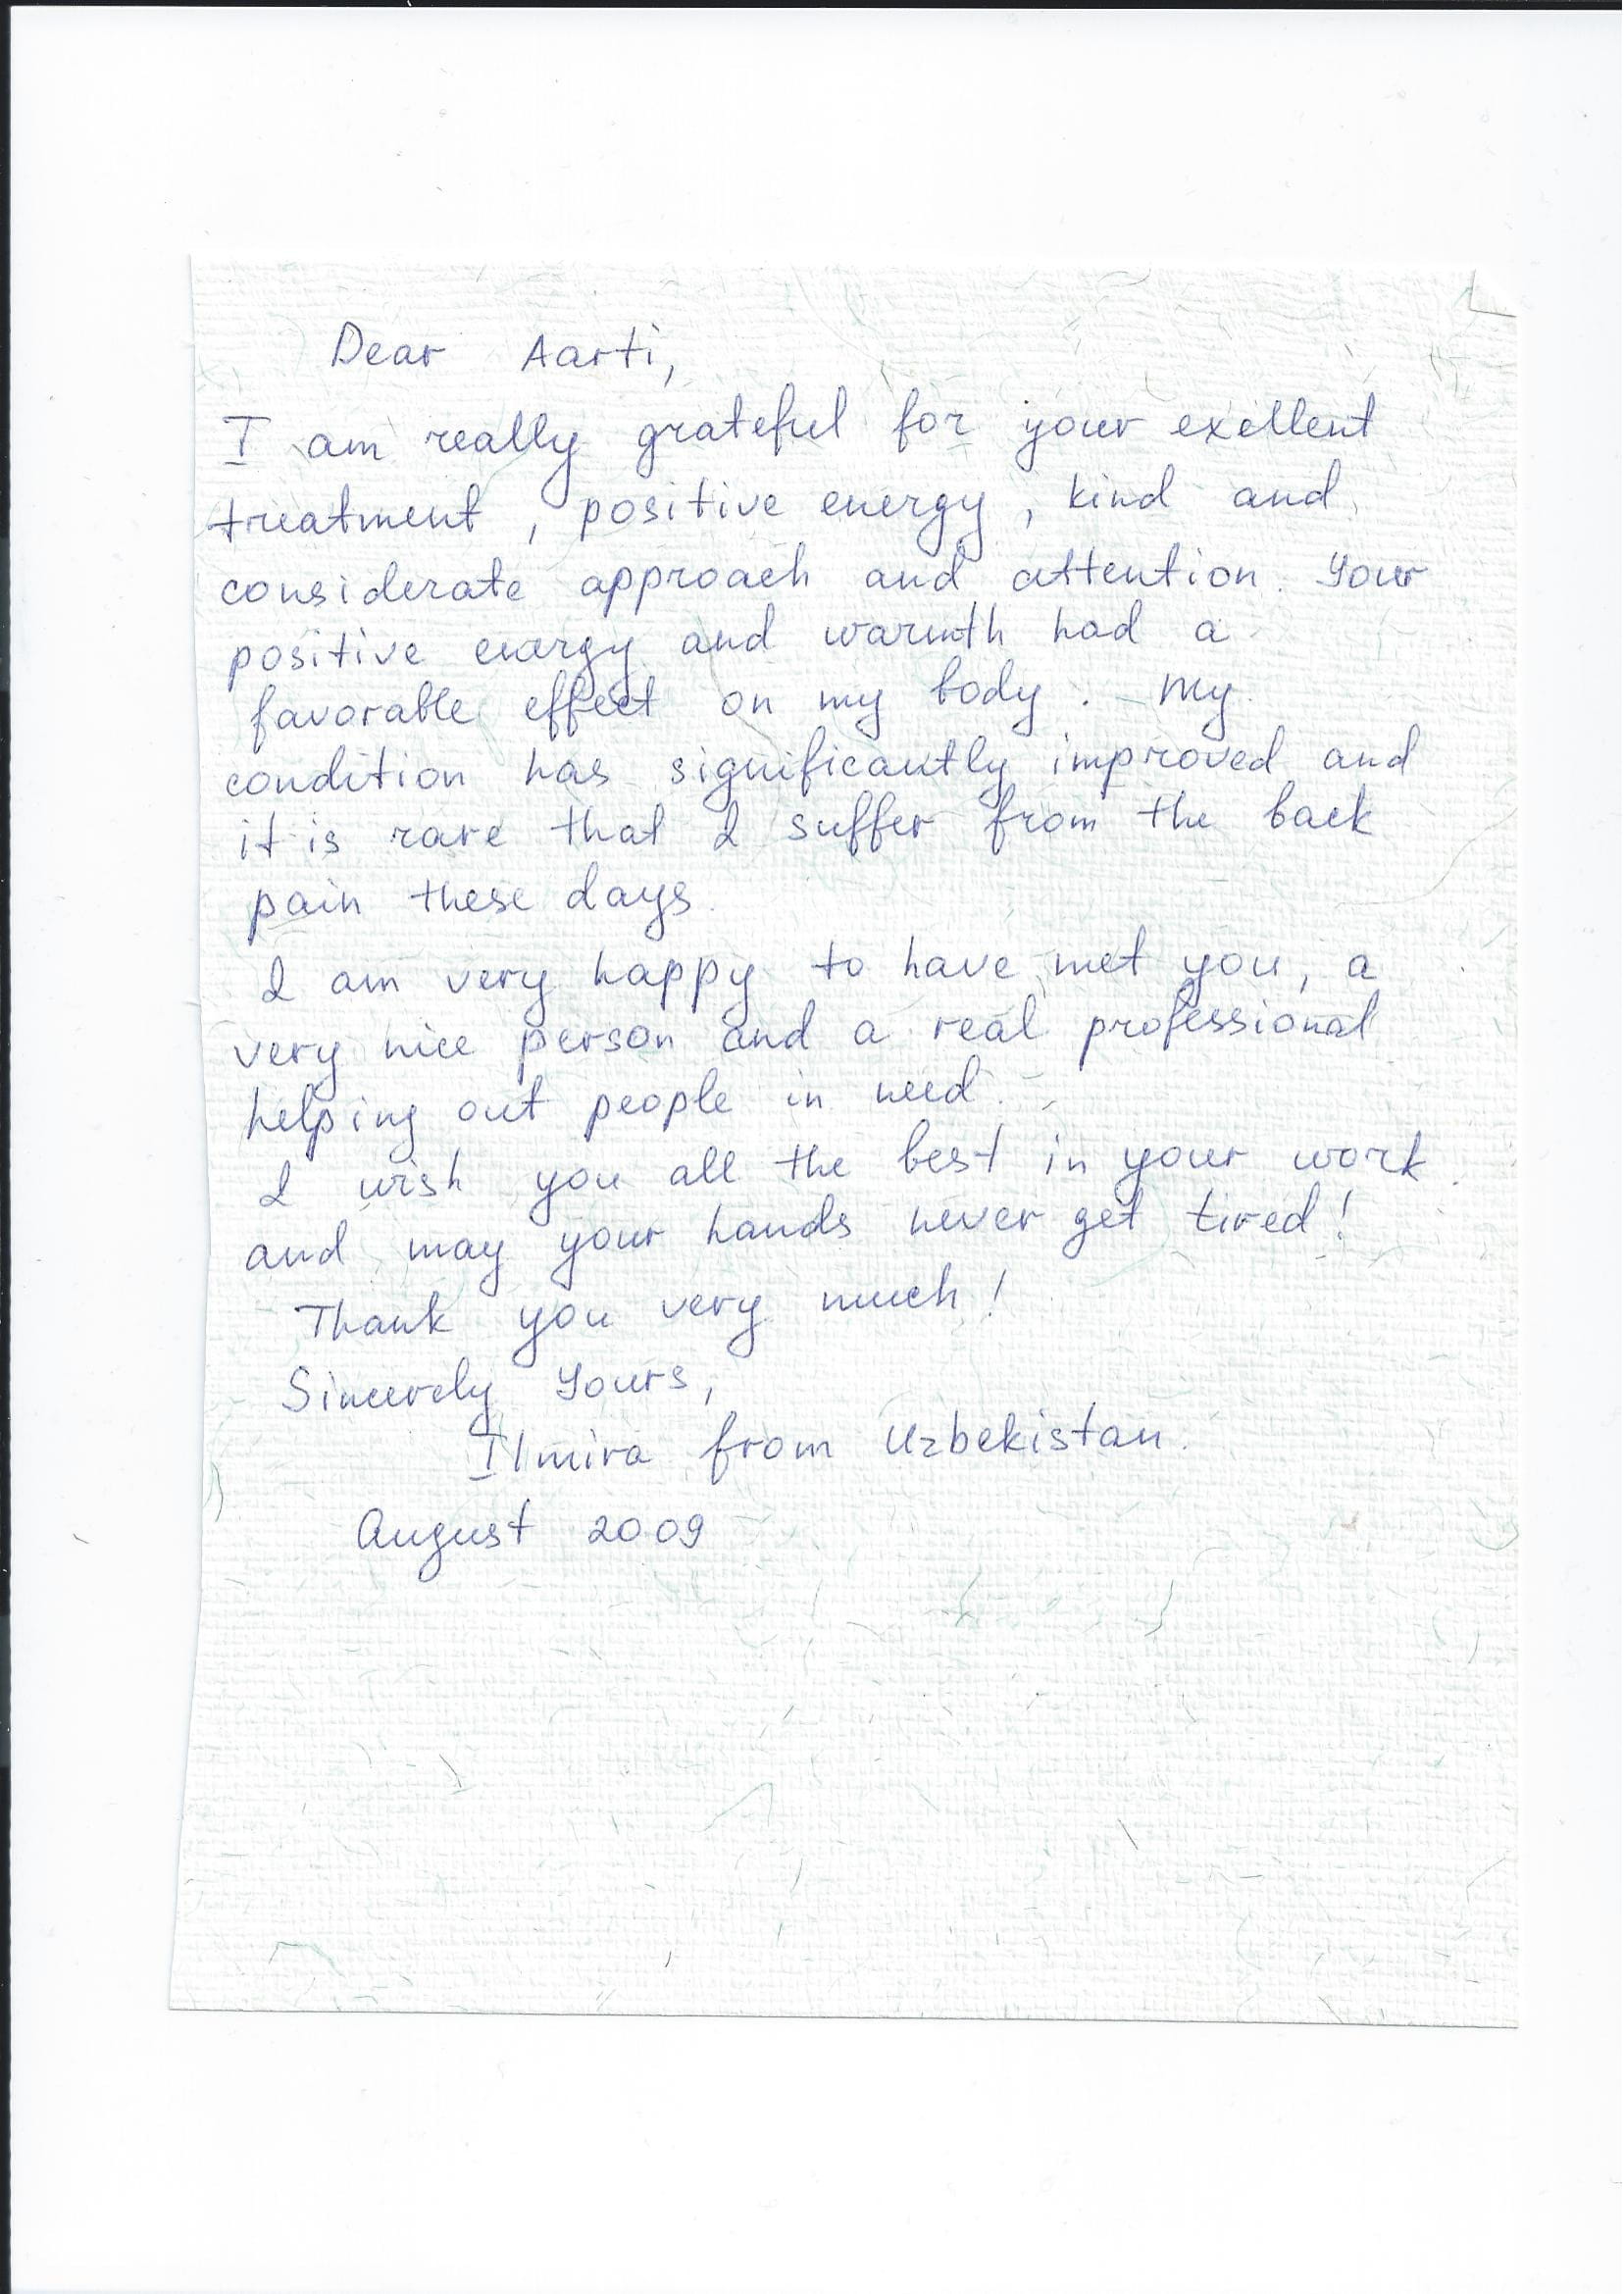 Dear Aarti,
I am really grateful for your exellent
treatment, positive energy, kind and
considerate approach and attention. Your
positive energy and warmth had a
favorable effect on my body. My
condition has significantly improved and
it is rare that I suffer from the back
pain these days.
I am very happy to have met you, a
very nice person and a real professional
helping out people in need.
I wish you all the best in your work
and may your hands never get tired!
Thank you very much!
Sincerely Yours,
Ilmira from Uzbekistan.
August 2009